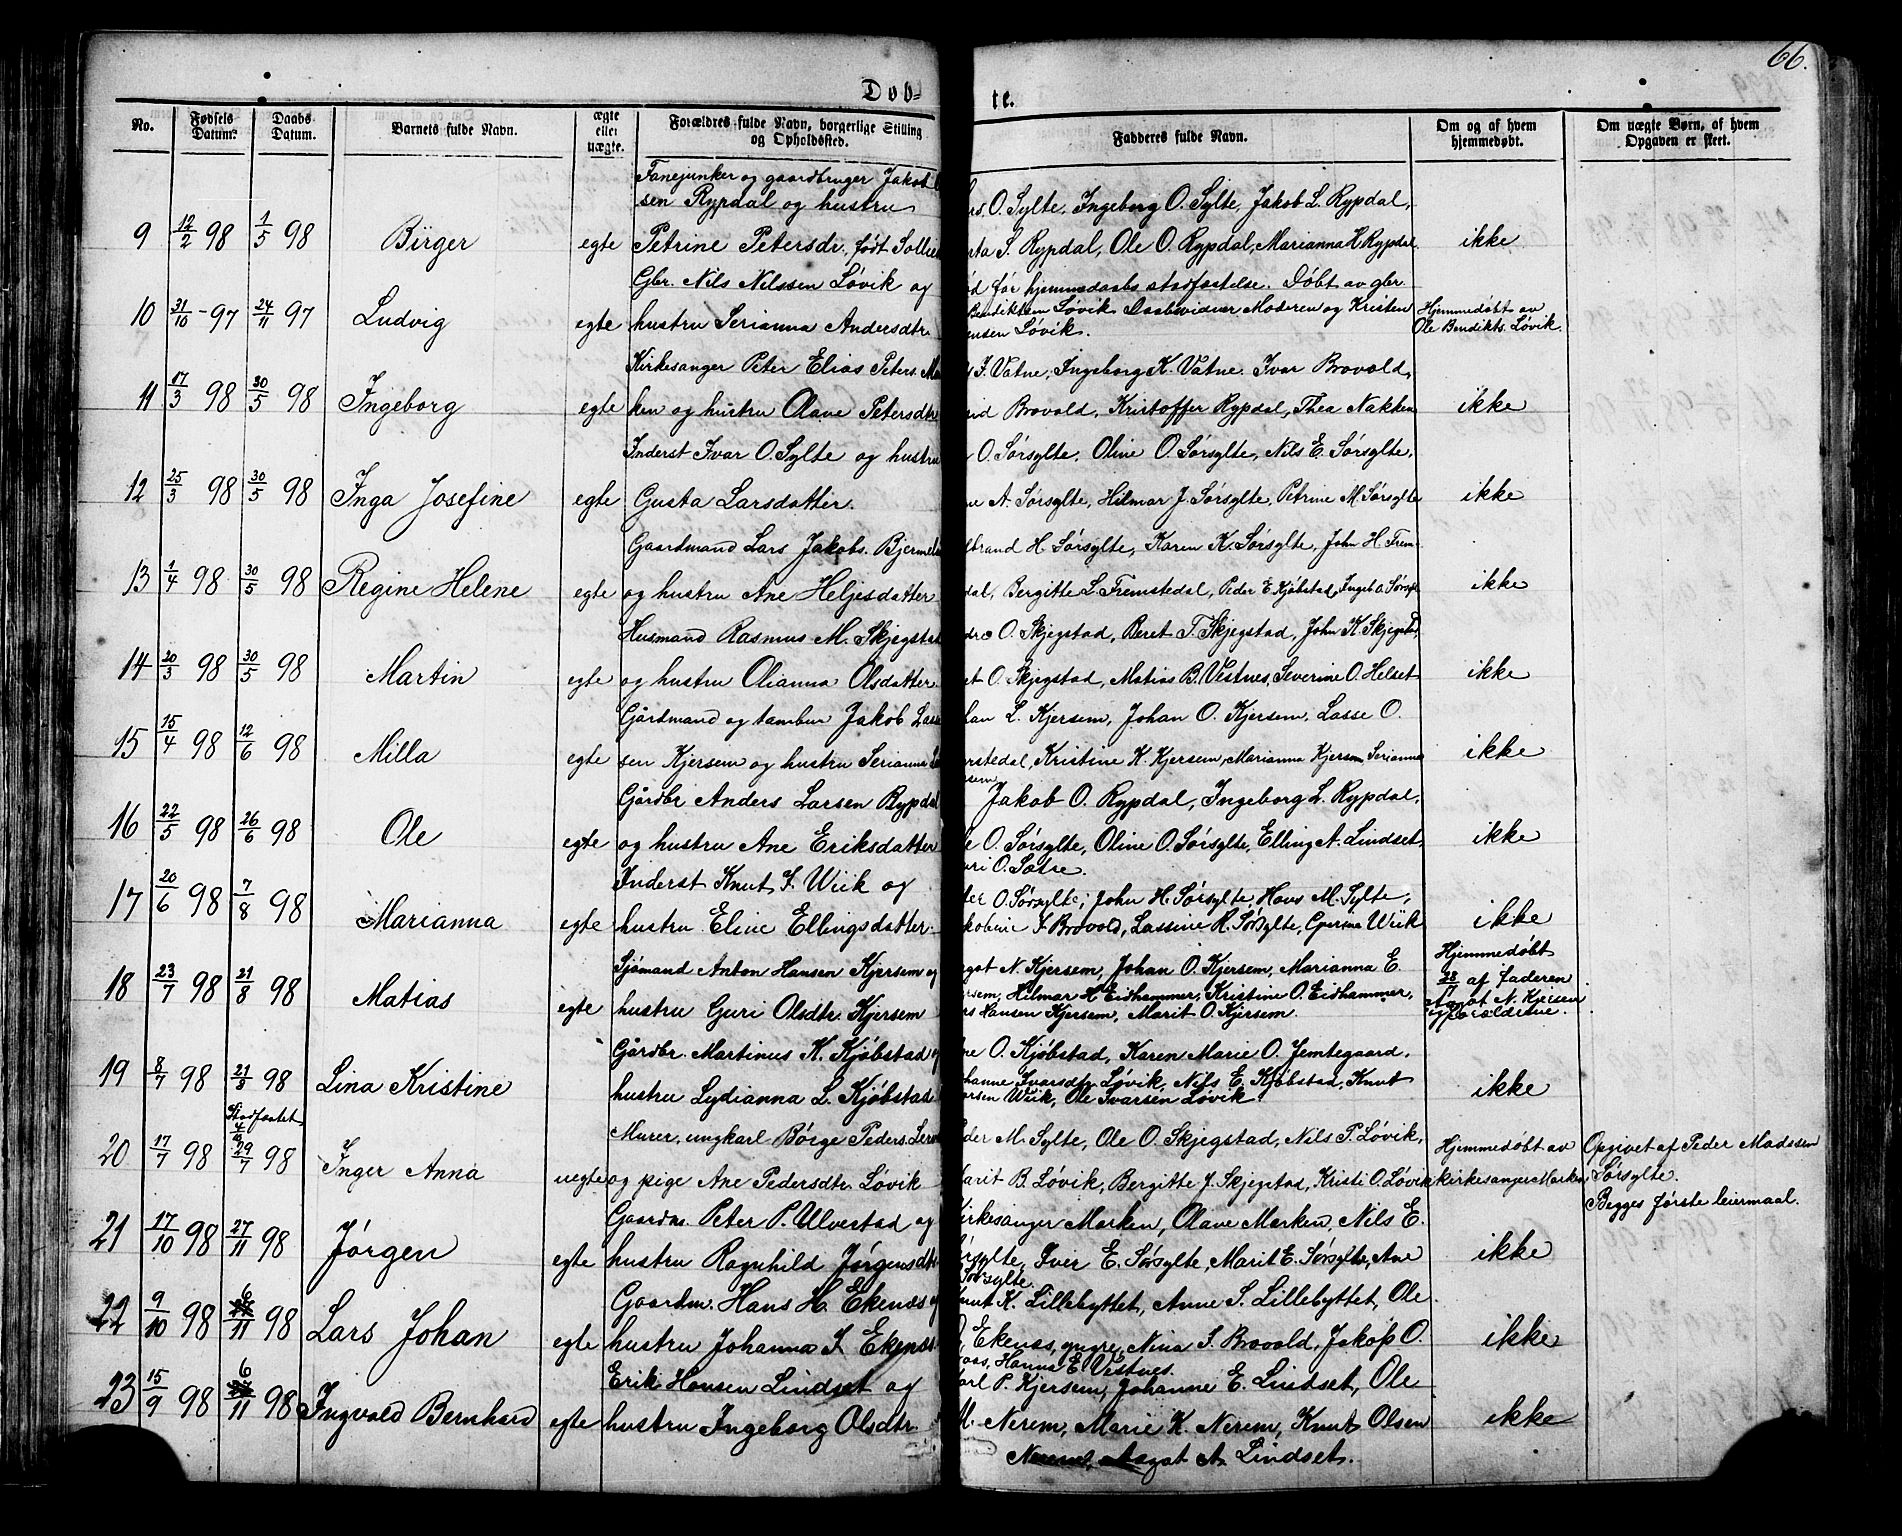 66.
Døb-
te.
No.
Fødsels Datum.
Daabs Datum.
Barnets fulde Navn.
ægte eller uægte.
Forældres fulde Navn, borgerlige Stilling og Opholdssted.
Fadderes fulde Navn.
Om og af hvem hjemmedøbt.
Om uægte Børn, af hvem Opgaven er skeet.
Fanejunker og gaardbruger Jakob
sen Rypdal og hustru
O. Sylte, Ingeborg O. Sylte, Jakob L. Rypdal,
9 12/2 98 1/5 98 Birger egte Petrine Petersdr. født
S. Rypdal, Ole O. Rypdal, Marianna K Rypdal ikke
Gbr. Nils Nilssen Løvik og
før hjemmedaabs stadfæstelse. Døbt av gbr.
10 31/10 - 97 24/11 97 Ludvig egte hustru Serianna Andersdtr
Løvik Daabsvidner Moderen og Kristen
Løvik.
Hjemmedøbt av
Ole Bendikts. Løvik.
Kirkesanger Peter Elias Peters. Mar
I. Vatne, Ingeborg K. Vatne. Ivar Brovold,
11 17/3 98 30/5 98 Ingeborg egte ken og hustru Olave Petersdtr
Brovold, Kristoffer Rypdal, Thea Nakken ikke
Inderst Ivar O. Sylte og hustru
O. Sørsylte, Oline O. Sørsylte, Nils E. Sørsylte,
12 25/3 98 30/5 98 Inga Josefine egte Gusta Larsdatter.
A. Sørsylte, Hilmar J. Sørsylte, Petrine M. Sørsylte ikke
Gaardmand Lars Jakobs. Bjerme
brand H. Sørsylte, Karen K. Sørsylte, John H. Frem-
13 1/4 98 30/5 98 Regine Helene egte og hustru Ane Heljesdatter
dal, Bergitte L. Fremstedal, Peder E. Kjøbstad, Ingeb. O. Sørsylte ikke
Husmand Rasmus M. Skjegstad
O. Skjegstad, Beret T. Skjegstad, John K. Skjegstad,
14 20/3 98 30/5 98 Martin egte og hustru Olianna Olsdatter
O. Skjegstad, Matias B. Vestnes, Severine O. Helset ikke
Gårdmand og tambur Jakob Las
han L. Kjersem, Johan O. Kjersem, Lasse O.
15 15/4 98 12/6 98 Milla egte sen Kjersem og hustru Serianna
stedal, Kristine K. Kjersem, Marianna Kjersem, Serianna
sem ikke
Gårdbr Anders Larsen Rypdal
Jakob O. Rypdal, Ingeborg L. Rypdal,
16 22/5 98 26/6 98 Ole egte og hustru Ane Eriksdatter
O. Sørsylte, Oline O. Sørsylte, Elling A. Lindset, ikke
Inderst Knut S. Wiik og
uri O. Sætre.
O. Sørsylte; John H. Sørsylte, Hans M. Sylte,
17 20/6 98 7/8 98 Marianna egte hustru Eline Ellingsdatter.
I. Brovold, Lassine R. Sørsylte, Wiik ikke
Sjømand Anton Hansen Kjersem og
N. Kjersem, Johan O. Kjersem, Marianna E.
Hjemmedøbt
18 23/7 98 21/8 98 Matias egte hustru Guri Olsdtr. Kjersem
sem, Hilmar H Eidhammer, Kristine O. Eidhammer,
Hansen Kjersem, Marit O. Kjersem.
af faderen
N. Kjersem
Gårdbr. Martinus K. Kjøbstad og
O. Kjøbstad, Karen Marie O. Jemtegaard,
19 8/7 98 21/8 98 Lina Kristine hustru Lydianna L. Kjøbstad
hanne Ivarsdtr Løvik, Nils E. Kjøbstad, Knut
Wiik, Ole Ivarsen Løvik ikke
Stadfæstet
Murer, ungkarl Børge Peders. Ler
der M. Sylte, Ole O. Skjegstad, Nils P. Løvik,
Hjemmedøbt av
Opgivet af Peder Madssen
20 17/7 98 29/7 98 Inger Anna uegte og pige Ane Pedersdtr. Løvik
arit B. Løvik, Bergitte J. Skjegstad, Kristi O. Løvik
kirkesanger Marken
Sørsylte.
Begges første leiermaal.
Gaardm. Peter P. Ulvestad og
irkesanger Marken, Olave Marken, Nils E.
21 17/10 98 27/11 98 Jørgen egte hustru Ragnhild Jørgensdtr
Iver E. Sørsylte, Marit E. Sørsylte, Ane
Sørsylte. ikke
Gaardm. Hans H. Ekenæs og
nut K. Lillebyttet, Anne S. Lillebyttet, Ole
22 9/10 98 6/11 98 Lars Johan egte hustru Johanna I Ekenæs
Ekenæs, yngre, Nina I. Brovold, Jakop O.
Hanna E Vestnes. ikke
Erik Hansen Lindset og
arl P. Kjersem, Johanne E. Lindset, Ole
23 15/9 98 6/11 98 Ingvald Bernhard egte hustru Ingeborg Olsdtr
M. Nerem, Marie K. Nerem, Knut Olsen ikke
Aagot A. Lindset.